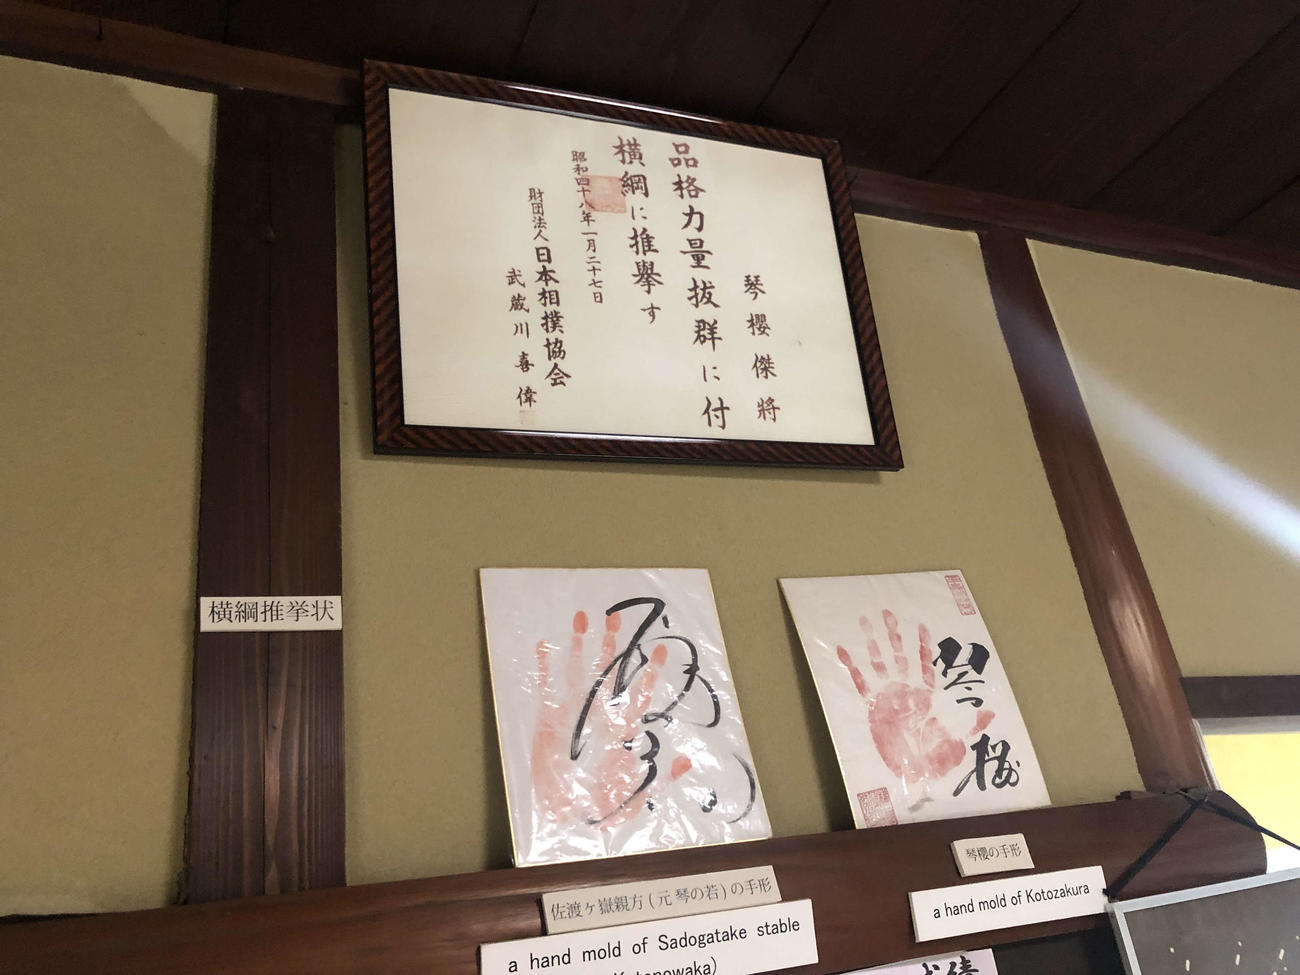 琴櫻傑將
品格力量抜群に付
横綱に推擧す
昭和四十八年一月二十七日
財団法人日本相撲協会
武蔵川喜偉
横綱推挙状
琴櫻
佐渡ヶ嶽親方(元 琴の若)の手形
a hand mold of Sadogatake stable
琴櫻の手形
a hand mold of Kotozakura